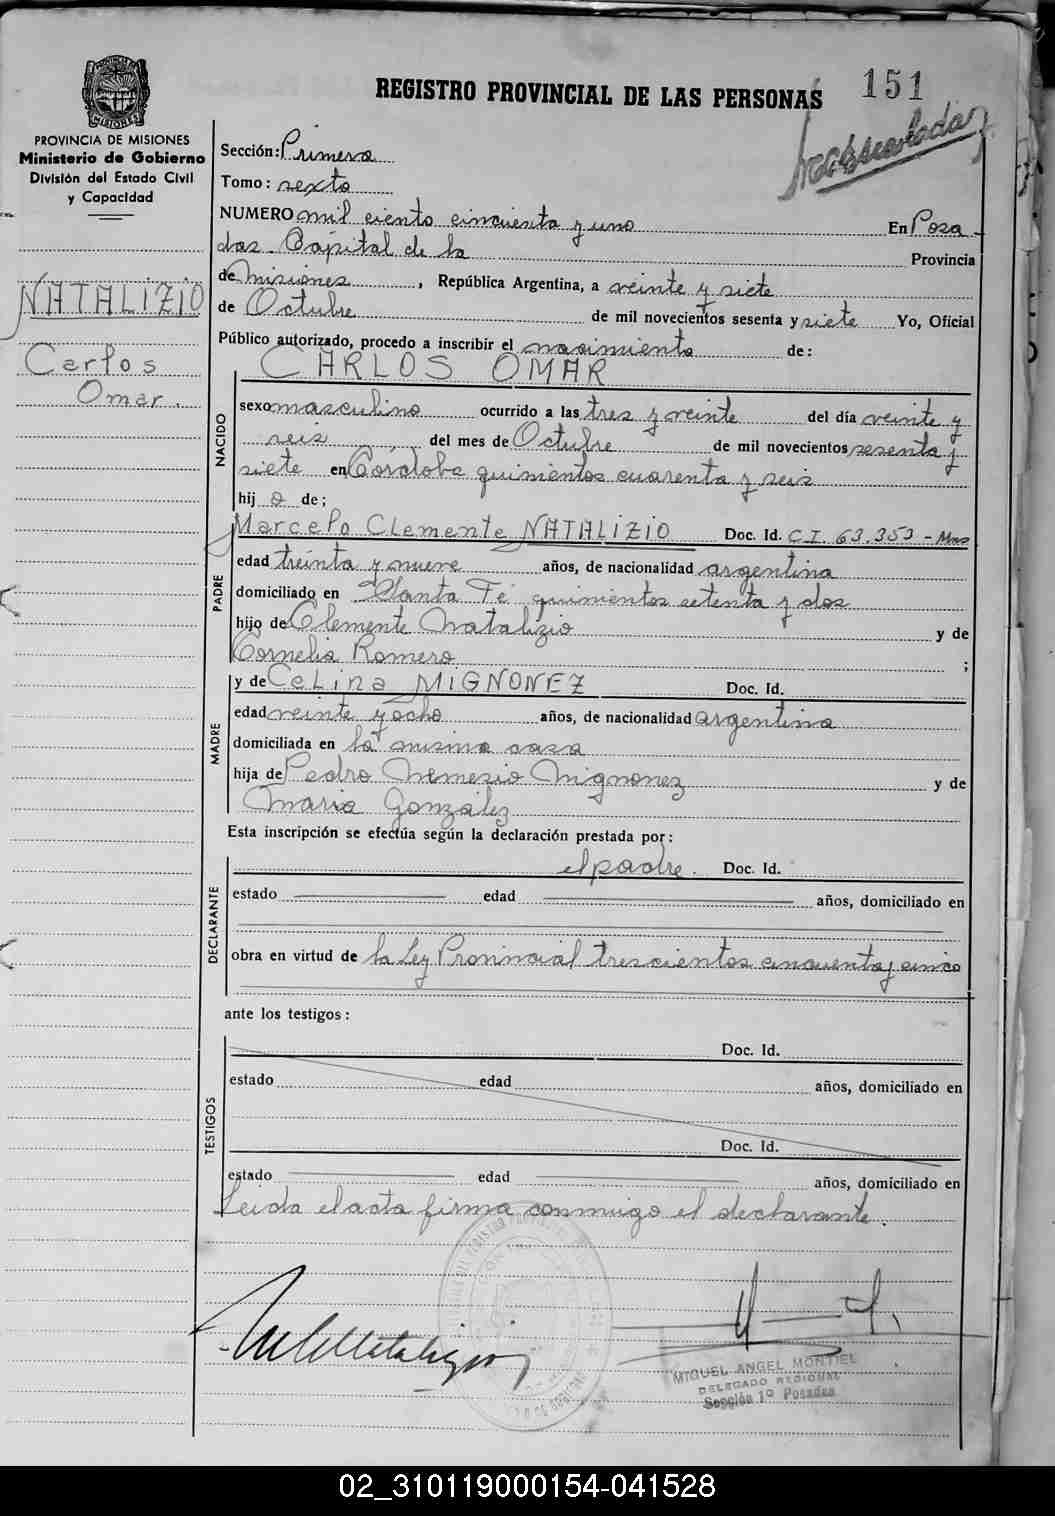 REGISTRO PROVINCIAL DE LAS PERSONAS
151
PROVINCIA DE MISIONES
MISIONES
PROVINCIA DE MISIONES
Ministerio de Gobierno
División del Estado Civil
y Capacidad
NATALIZIO
Carlos
Omar.
Sección: Primera
Tomo: sexto
NUMERO mil ciento cincuenta y uno En Posa-
das. Capital de la Provincia
de Misiones, República Argentina, a veinte y siete
de Octubre de mil novecientos sesenta y siete Yo, Oficial
Público autorizado, procedo a inscribir el nacimiento de:
CARLOS OMAR
NACIDO
sexo masculino ocurrido a las tres y veinte del día veinte y
seis del mes de Octubre de mil novecientos sesenta y
siete en Córdoba quinientos cuarenta y seis
hijo de;
PADRE
Marcelo Clemente NATALIZIO Doc. Id. C I. 63.353 - Mnes
edad treinta y nueve años, de nacionalidad argentina
domiciliado en Santa Fé quinientos setenta y dos
hijo de Clemente Natalizio y de
Cornelia Romero ;
MADRE
y de Celina MIGNONEZ Doc. Id.
edad veinte y ocho años, de nacionalidad argentina
domiciliada en la misma casa
hija de Pedro Nemesio Mignonez y de
Maria González
Esta inscripción se efectúa según la declaración prestada por:
DECLARANTE
el padre. Doc. Id.
estado edad años, domiciliado en
obra en virtud de la Ley Provincial trescientos cincuenta y cinco
ante los testigos:
TESTIGOS
Doc. Id.
estado edad años, domiciliado en
Doc. Id.
estado edad años, domiciliado en
Leida el acta firma conmigo el declarante.
MIGUEL ANGEL MONTIEL
DELEGADO REGIONAL
Sección 1º Posadas
02_310119000154-041528